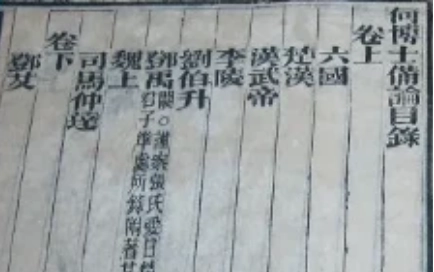 何博士備論目錄
卷上
六國
楚漢
漢武帝
李陵
劉伯升
鄧禹闕○謹案張氏愛日
子準處所錄附著
魏上
司馬仲達
卷下
鄧艾